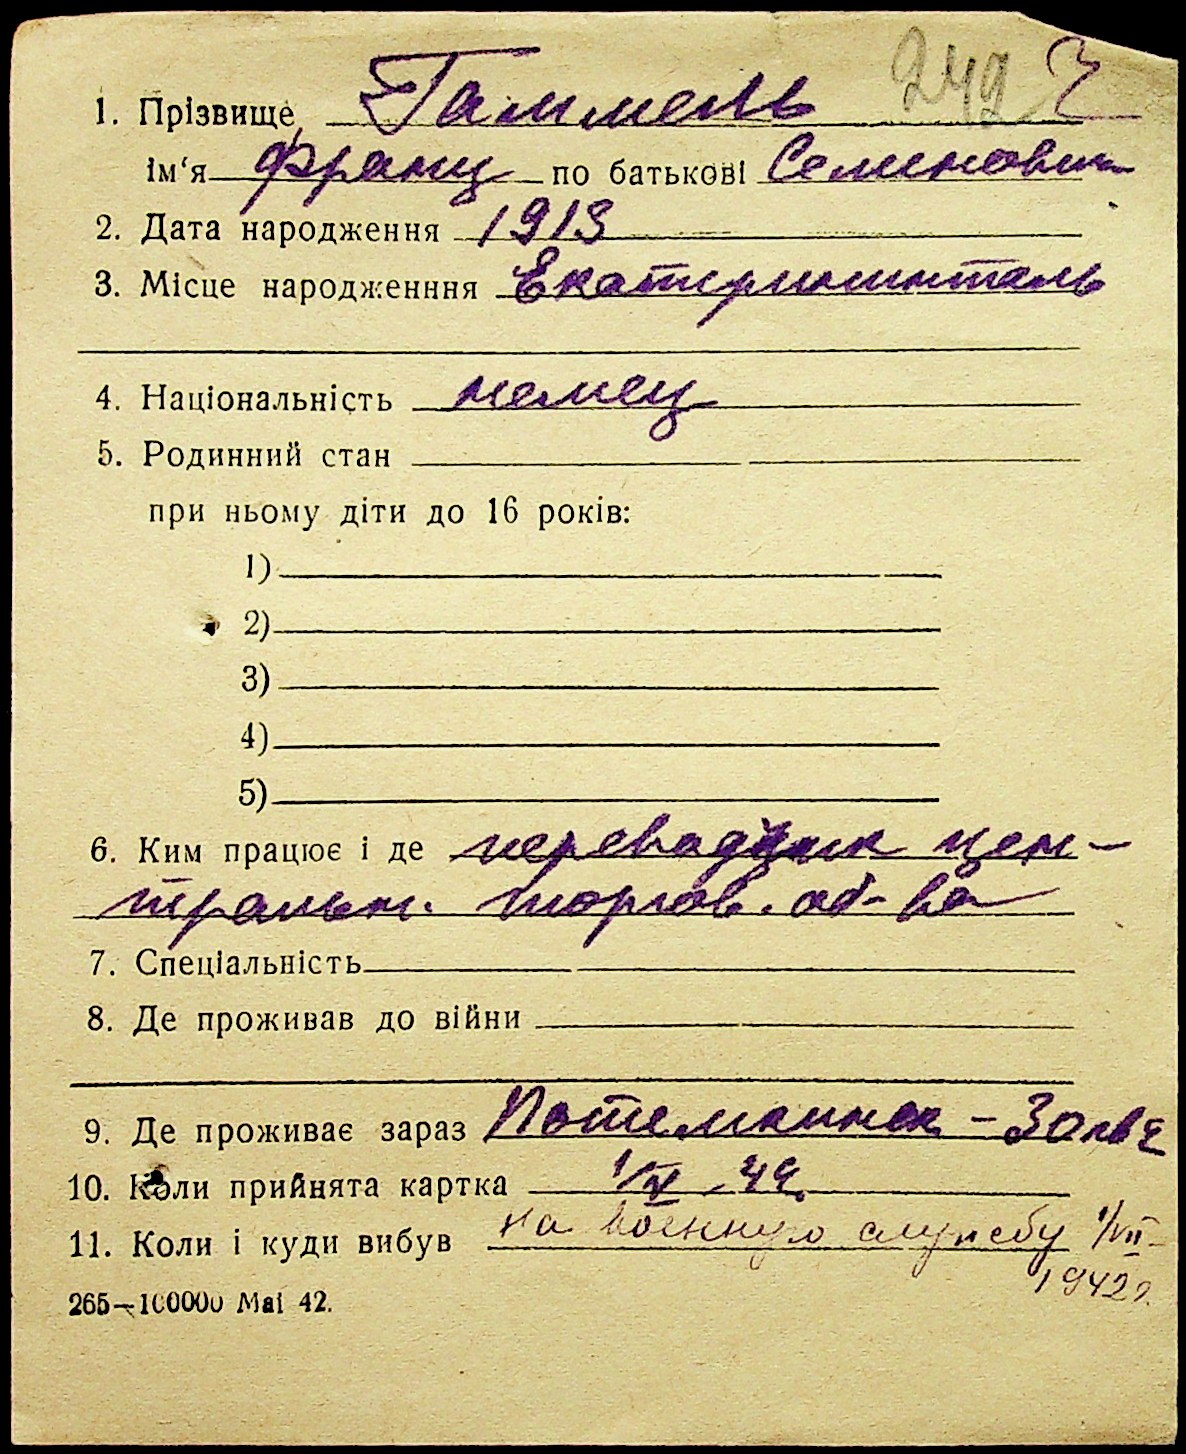 242
1. Прізвище Гаммель
ім'я Франц по батькові Семенович
2. Дата народження 1913
3. Місце народженння
4. Національність немец
5. Родинний стан
при ньому діти до 16 років:
1)
2)
3)
4)
5)
6. Ким працює і де переводчик цен-
тральн. торгов. об-ва
7. Спеціальність
8. Де проживав до війни
9. Де проживає зараз
10. Коли прийнята картка
11. Коли і куди вибув на военную службу 1/VII
1942г.
265—100000 Маі 42.